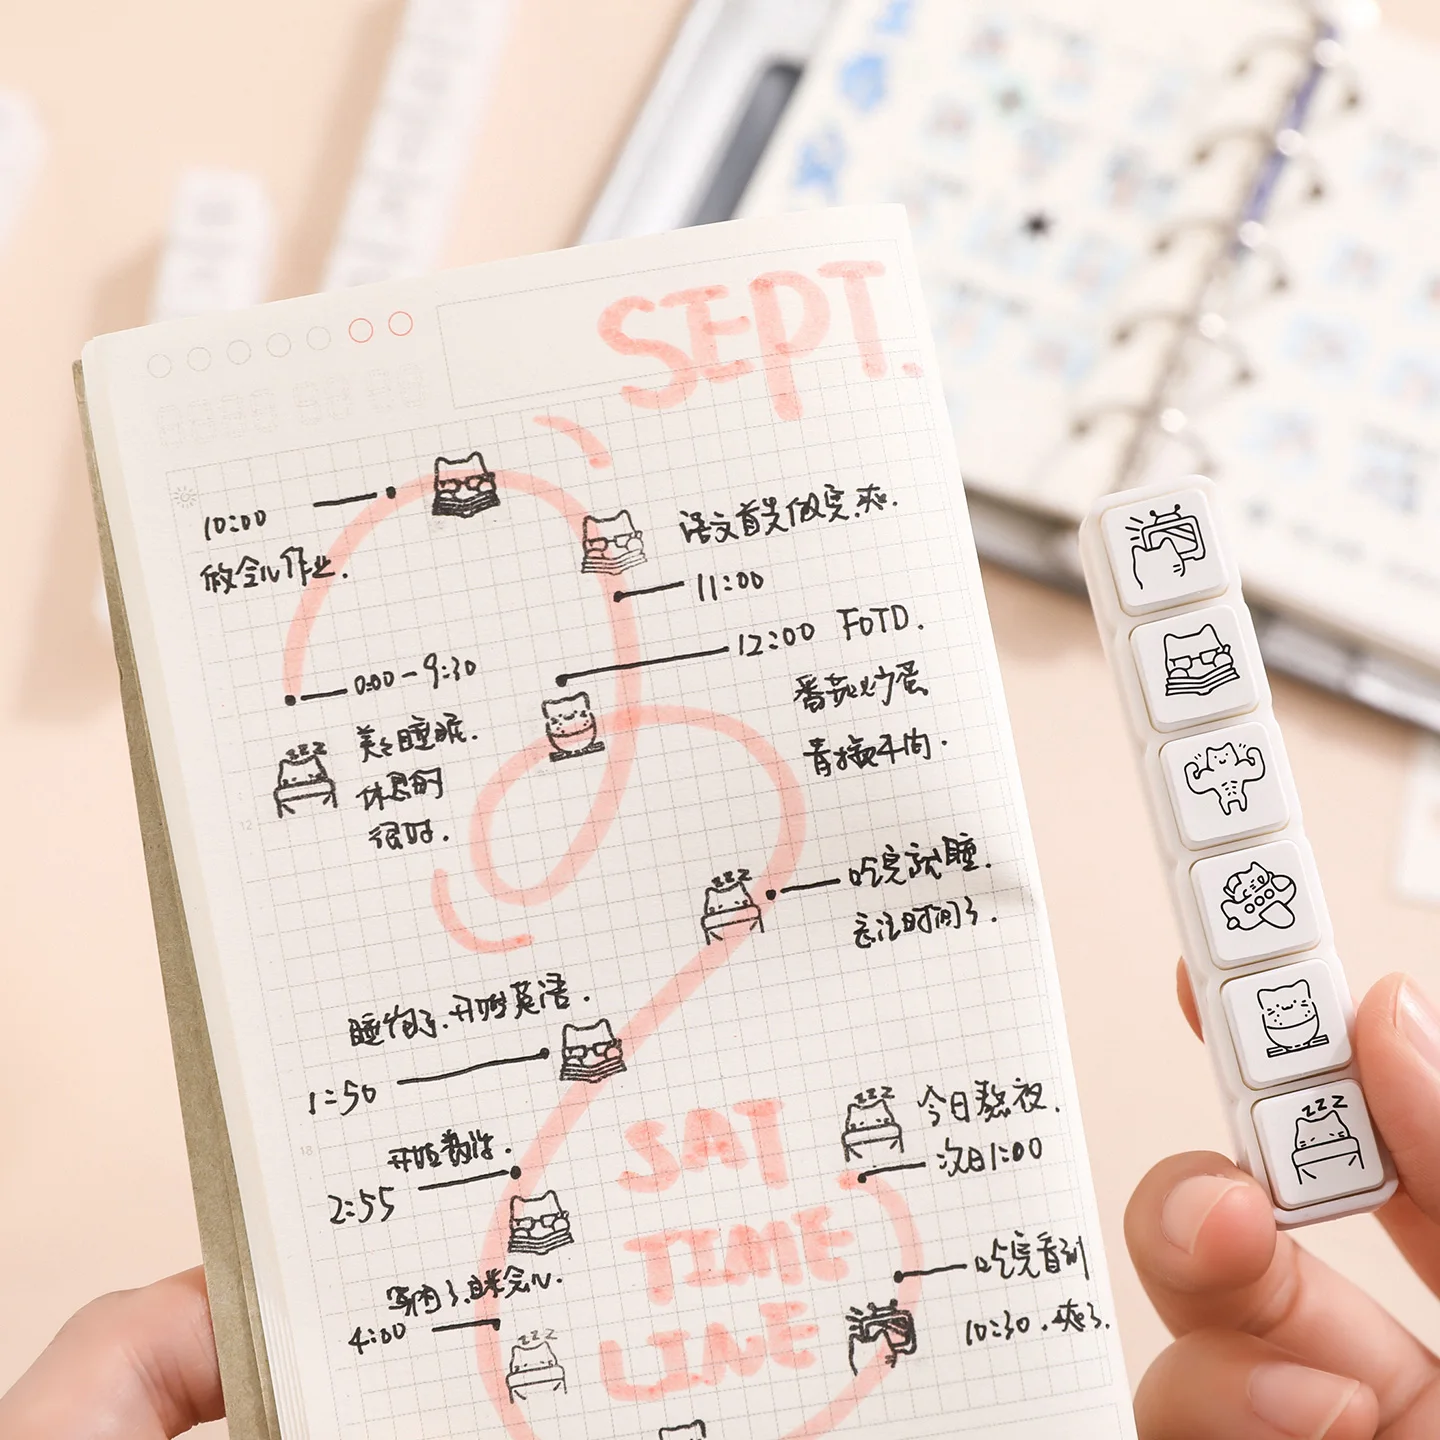 SEPT.
10:00
做会儿作业.
语文首先做完,爽.
11:00
12:00 FOTD.
番茄炒蛋
青椒牛肉.
0:00-9:30
美美睡眠.
休息的
很好.
吃完就睡.
忘记时间了.
睡饱了.开始英语.
1:50
开始数学.
2:55
累了.自来会儿.
4:00
SAT
TIME
LINE
今日熬夜.
次日1:00
吃完看剧
10:30.爽了.
zzz
zzz
zzz
zzz
zzz